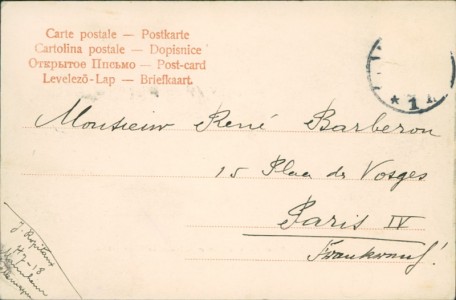 Carte postale — Postkarte
Cartolina postale — Dopisnice
Открытое Письмо — Post-card
Levelezö-Lap — Briefkaart
* 1
Monsieur René Barberon
15 Place des Vosges
Paris IV
Frankreich!
J.
H 7-18